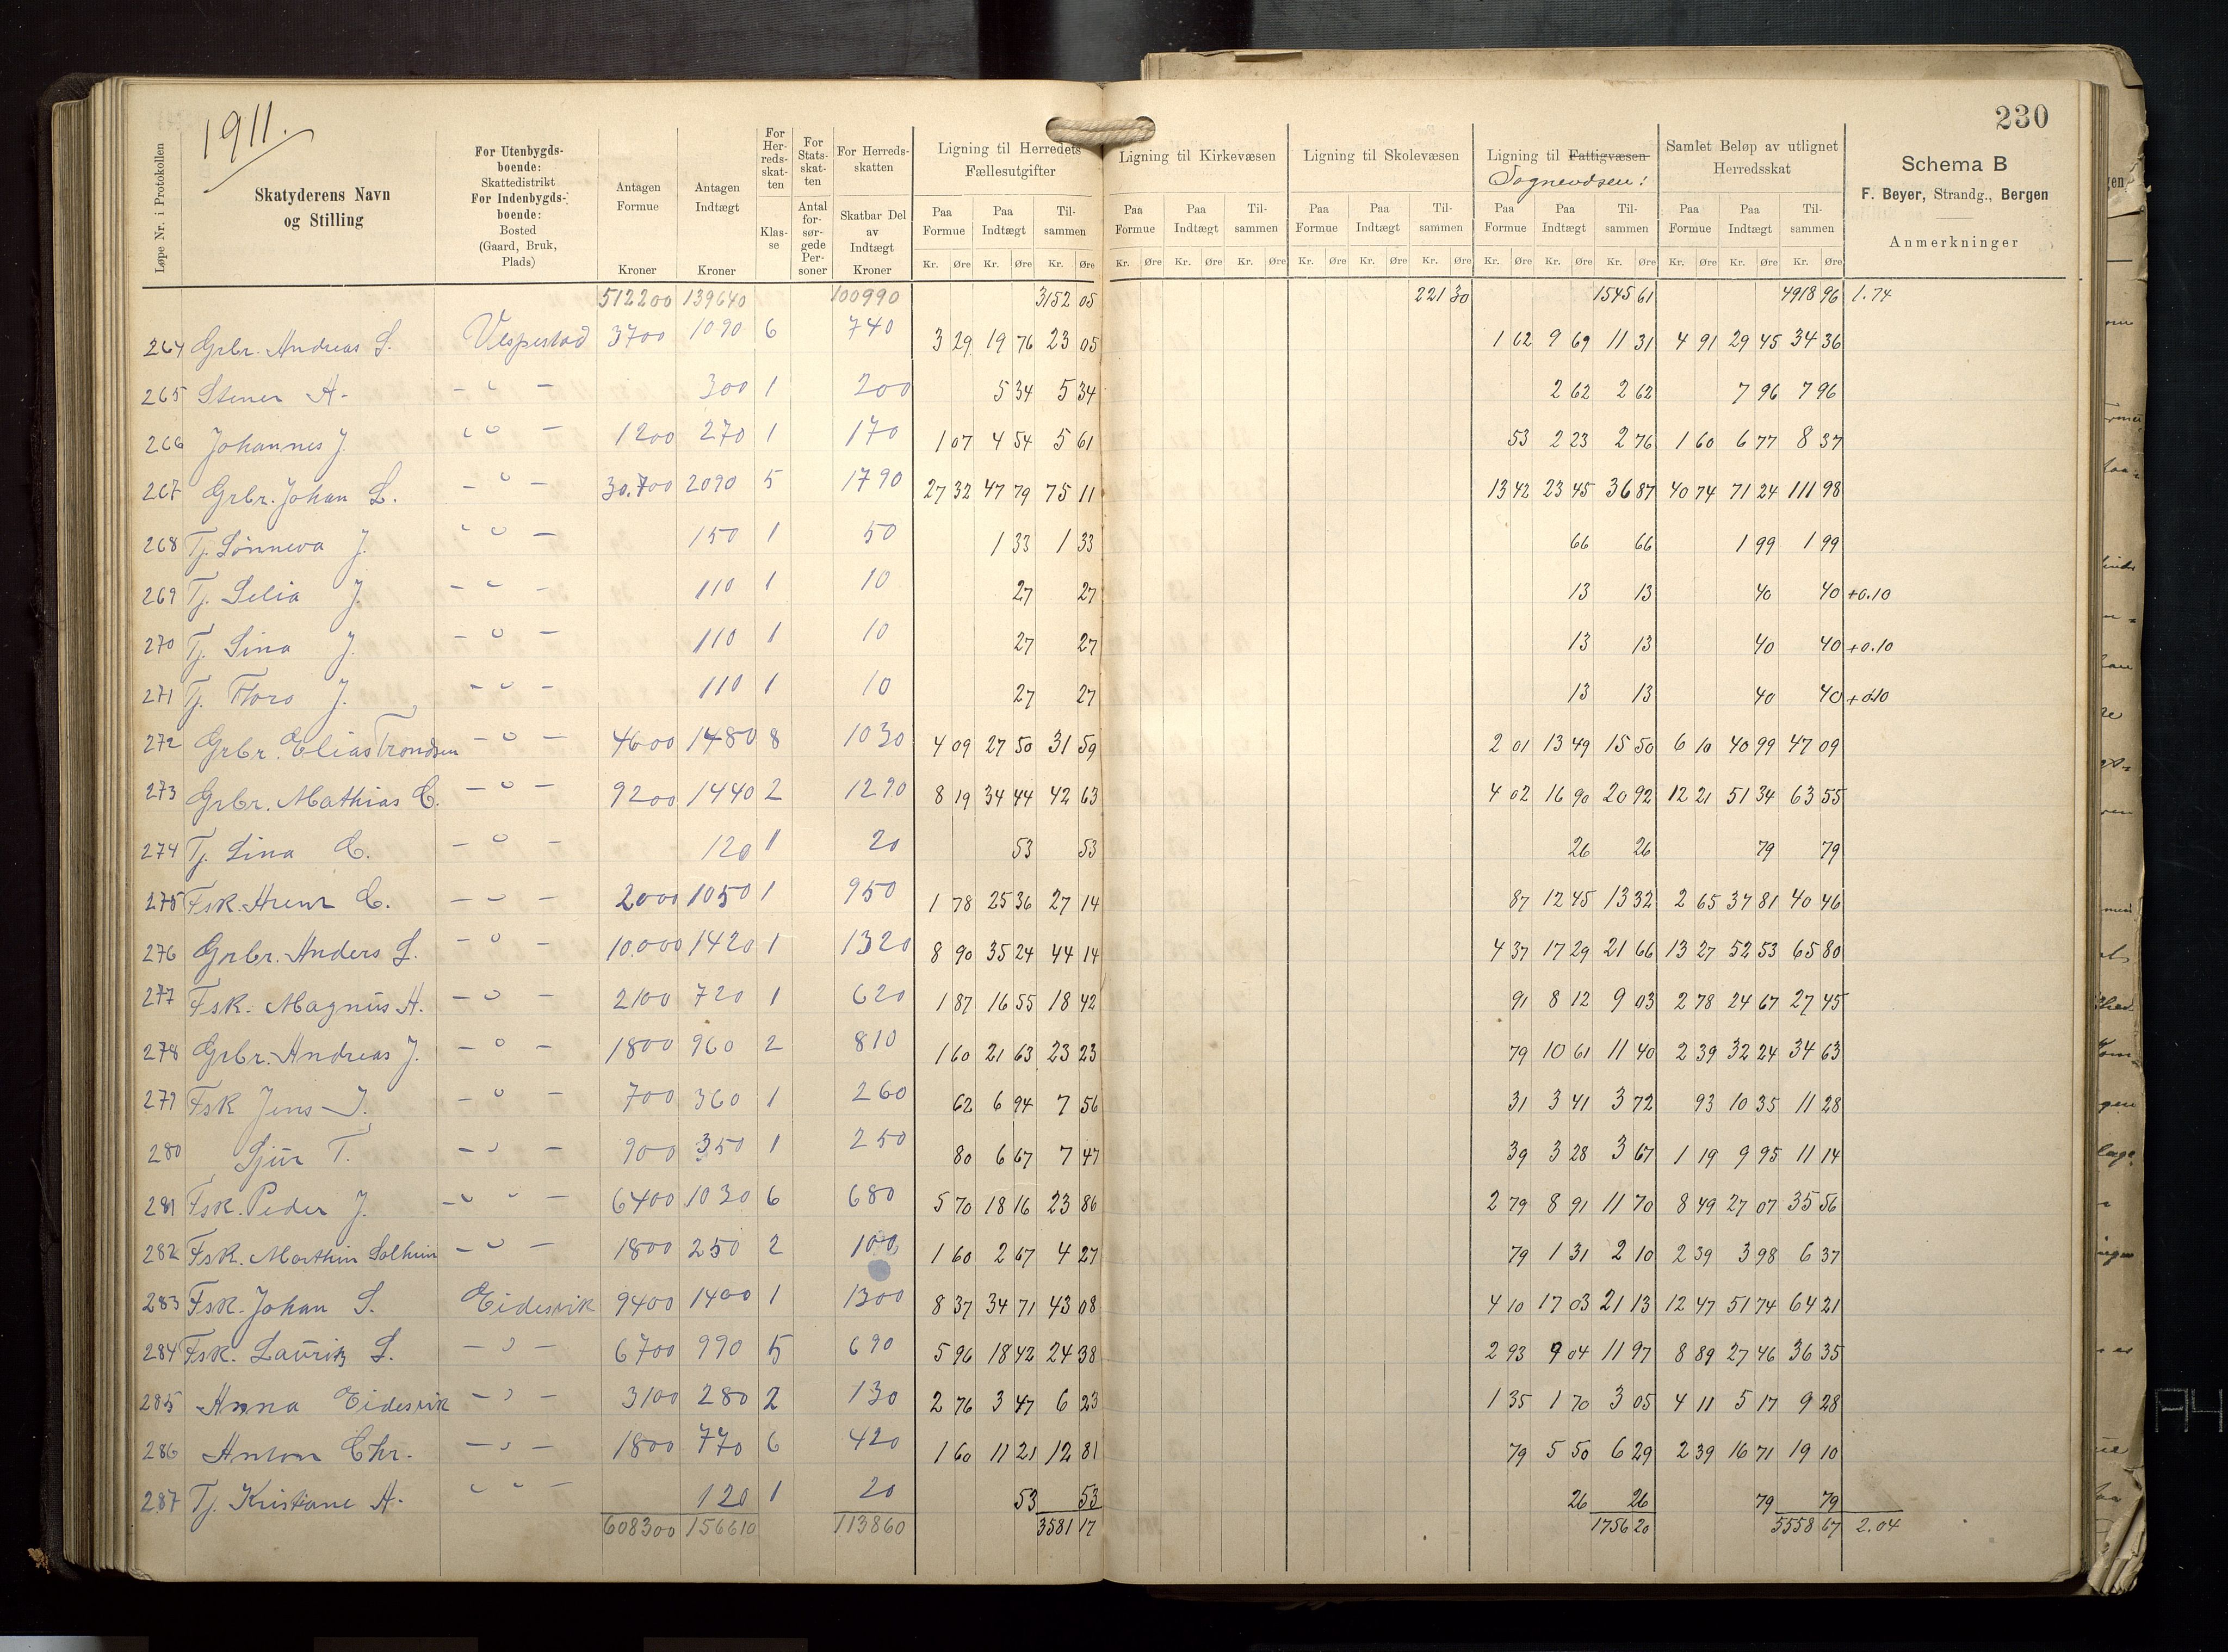 1911.
230
Løpe Nr. i Protokollen
Skatyderens Navn
og Stilling
For Utenbygds-
boende:
Skattedistrikt
For Indenbygds-
boende:
Bosted
(Gaard, Bruk,
Plads)
Antagen
Formue
Kroner
Antagen
Indtægt
Kroner
For
Her-
reds-
skat-
ten
Klas-
se
For
Stats-
skat-
ten
Antal
for-
sør-
gede
Per-
soner
For Herreds-
skatten
Skatbar Del
av
Indtægt
Kroner
Ligning til Herredets
Fællesutgifter
Paa Formue Paa Indtægt Til- sammen
Kr. Øre Kr. Øre Kr. Øre
Ligning til Kirkevæsen
Paa Formue Paa Indtægt Til- sammen
Kr. Øre Kr. Øre Kr. Øre
Ligning til Skolevæsen
Paa Formue Paa Indtægt Til- sammen
Kr. Øre Kr. Øre Kr. Øre
Ligning til Fattigvæsen
Paa Formue Paa Indtægt Til- sammen
Kr. Øre Kr. Øre Kr. Øre
Samlet Beløp av utlignet
Herredsskat
Paa Formue Paa Indtægt Til- sammen
Kr. Øre Kr. Øre Kr. Øre
Schema B
F. Beyer, Strandg., Bergen
Anmerkninger
512200 139640 100990 3152 05 221 30 1545 61 4918 96 1.74
264 Grbr. Andreas L. Vespestad 3700 1090 6 740 3 29 19 76 23 05 1 62 9 69 11 31 4 91 29 45 34 36
265 Stener A. - " - 300 1 200 5 34 5 34 2 62 2 62 7 96 7 96
266 Johannes J. " - 1200 270 1 170 1 07 4 54 5 61 53 2 23 2 76 1 60 6 77 8 37
267 Grbr. Johan L. - " - 30.700 2090 5 1790 27 32 47 79 75 11 13 42 23 45 36 87 40 74 71 24 111 98
268 Tj. Sønneva J. - " - 150 1 50 1 33 1 33 66 66 1 99 1 99
269 Tj. Selia J. - " - 110 1 10 27 27 13 13 40 40 +0.10
270 Tj. Sina J. - " - 110 1 10 27 27 13 13 40 40 +0.10
271 Tj. J. - " - 110 1 10 27 27 13 13 40 40 +0.10
272 Grbr. Elias Trondsen - " - 4600 1480 8 1030 4 09 27 50 31 59 2 01 13 49 15 50 6 10 40 99 47 09
273 Grbr. Mathias C. - " - 9200 1440 2 1290 8 19 34 44 42 63 4 02 16 90 20 92 12 21 51 34 63 55
274 Tj. Lina C. - " - 120 1 20 53 53 26 26 79 79
275 Fsk. C. - " - 2000 1050 1 950 1 78 25 36 27 14 87 12 45 13 32 2 65 37 81 40 46
276 Grbr. Anders L. - " - 10.000 1420 1 1320 8 90 35 24 44 14 4 37 17 29 21 66 13 27 52 53 65 80
277 Fsk. Magnus A. - " - 2100 720 1 620 1 87 16 55 18 42 91 8 12 9 03 2 78 24 67 27 45
278 Grbr. Andreas J. - " - 1800 960 2 810 1 60 21 63 23 23 79 10 61 11 40 2 39 32 24 34 63
279 Fsk Jens J. - " - 700 360 1 260 62 6 94 7 56 31 3 41 3 72 93 10 35 11 28
280 Sjur T. - " - 900 350 1 250 80 6 67 7 47 39 3 28 3 67 1 19 9 95 11 14
281 Fsk. Peder J. - " - 6400 1030 6 680 5 70 18 16 23 86 2 79 8 91 11 70 8 49 27 07 35 56
282 Fsk. Marthin Solheim - " - 1800 250 2 100 1 60 2 67 4 27 79 1 31 2 10 2 39 3 98 6 37
283 Fsk. Johan S. Eidesvik 9400 1400 1 1300 8 37 34 71 43 08 4 10 17 03 21 13 12 47 51 74 64 21
284 Fsk. Lauritz S. - " - 6700 990 5 690 5 96 18 42 24 38 2 93 9 04 11 97 8 89 27 46 36 35
285 Anna Eidesvik - " - 3100 280 2 130 2 76 3 47 6 23 1 35 1 70 3 05 4 11 5 17 9 28
286 Anton Chr. - " - 1800 770 6 420 1 60 11 21 12 81 79 5 50 6 29 2 39 16 71 19 10
287 Tj. Kristiane A. " " - 120 1 20 53 53 26 26 79 79
608300 156610 113860 3581 17 1756 20 5558 67 2.04